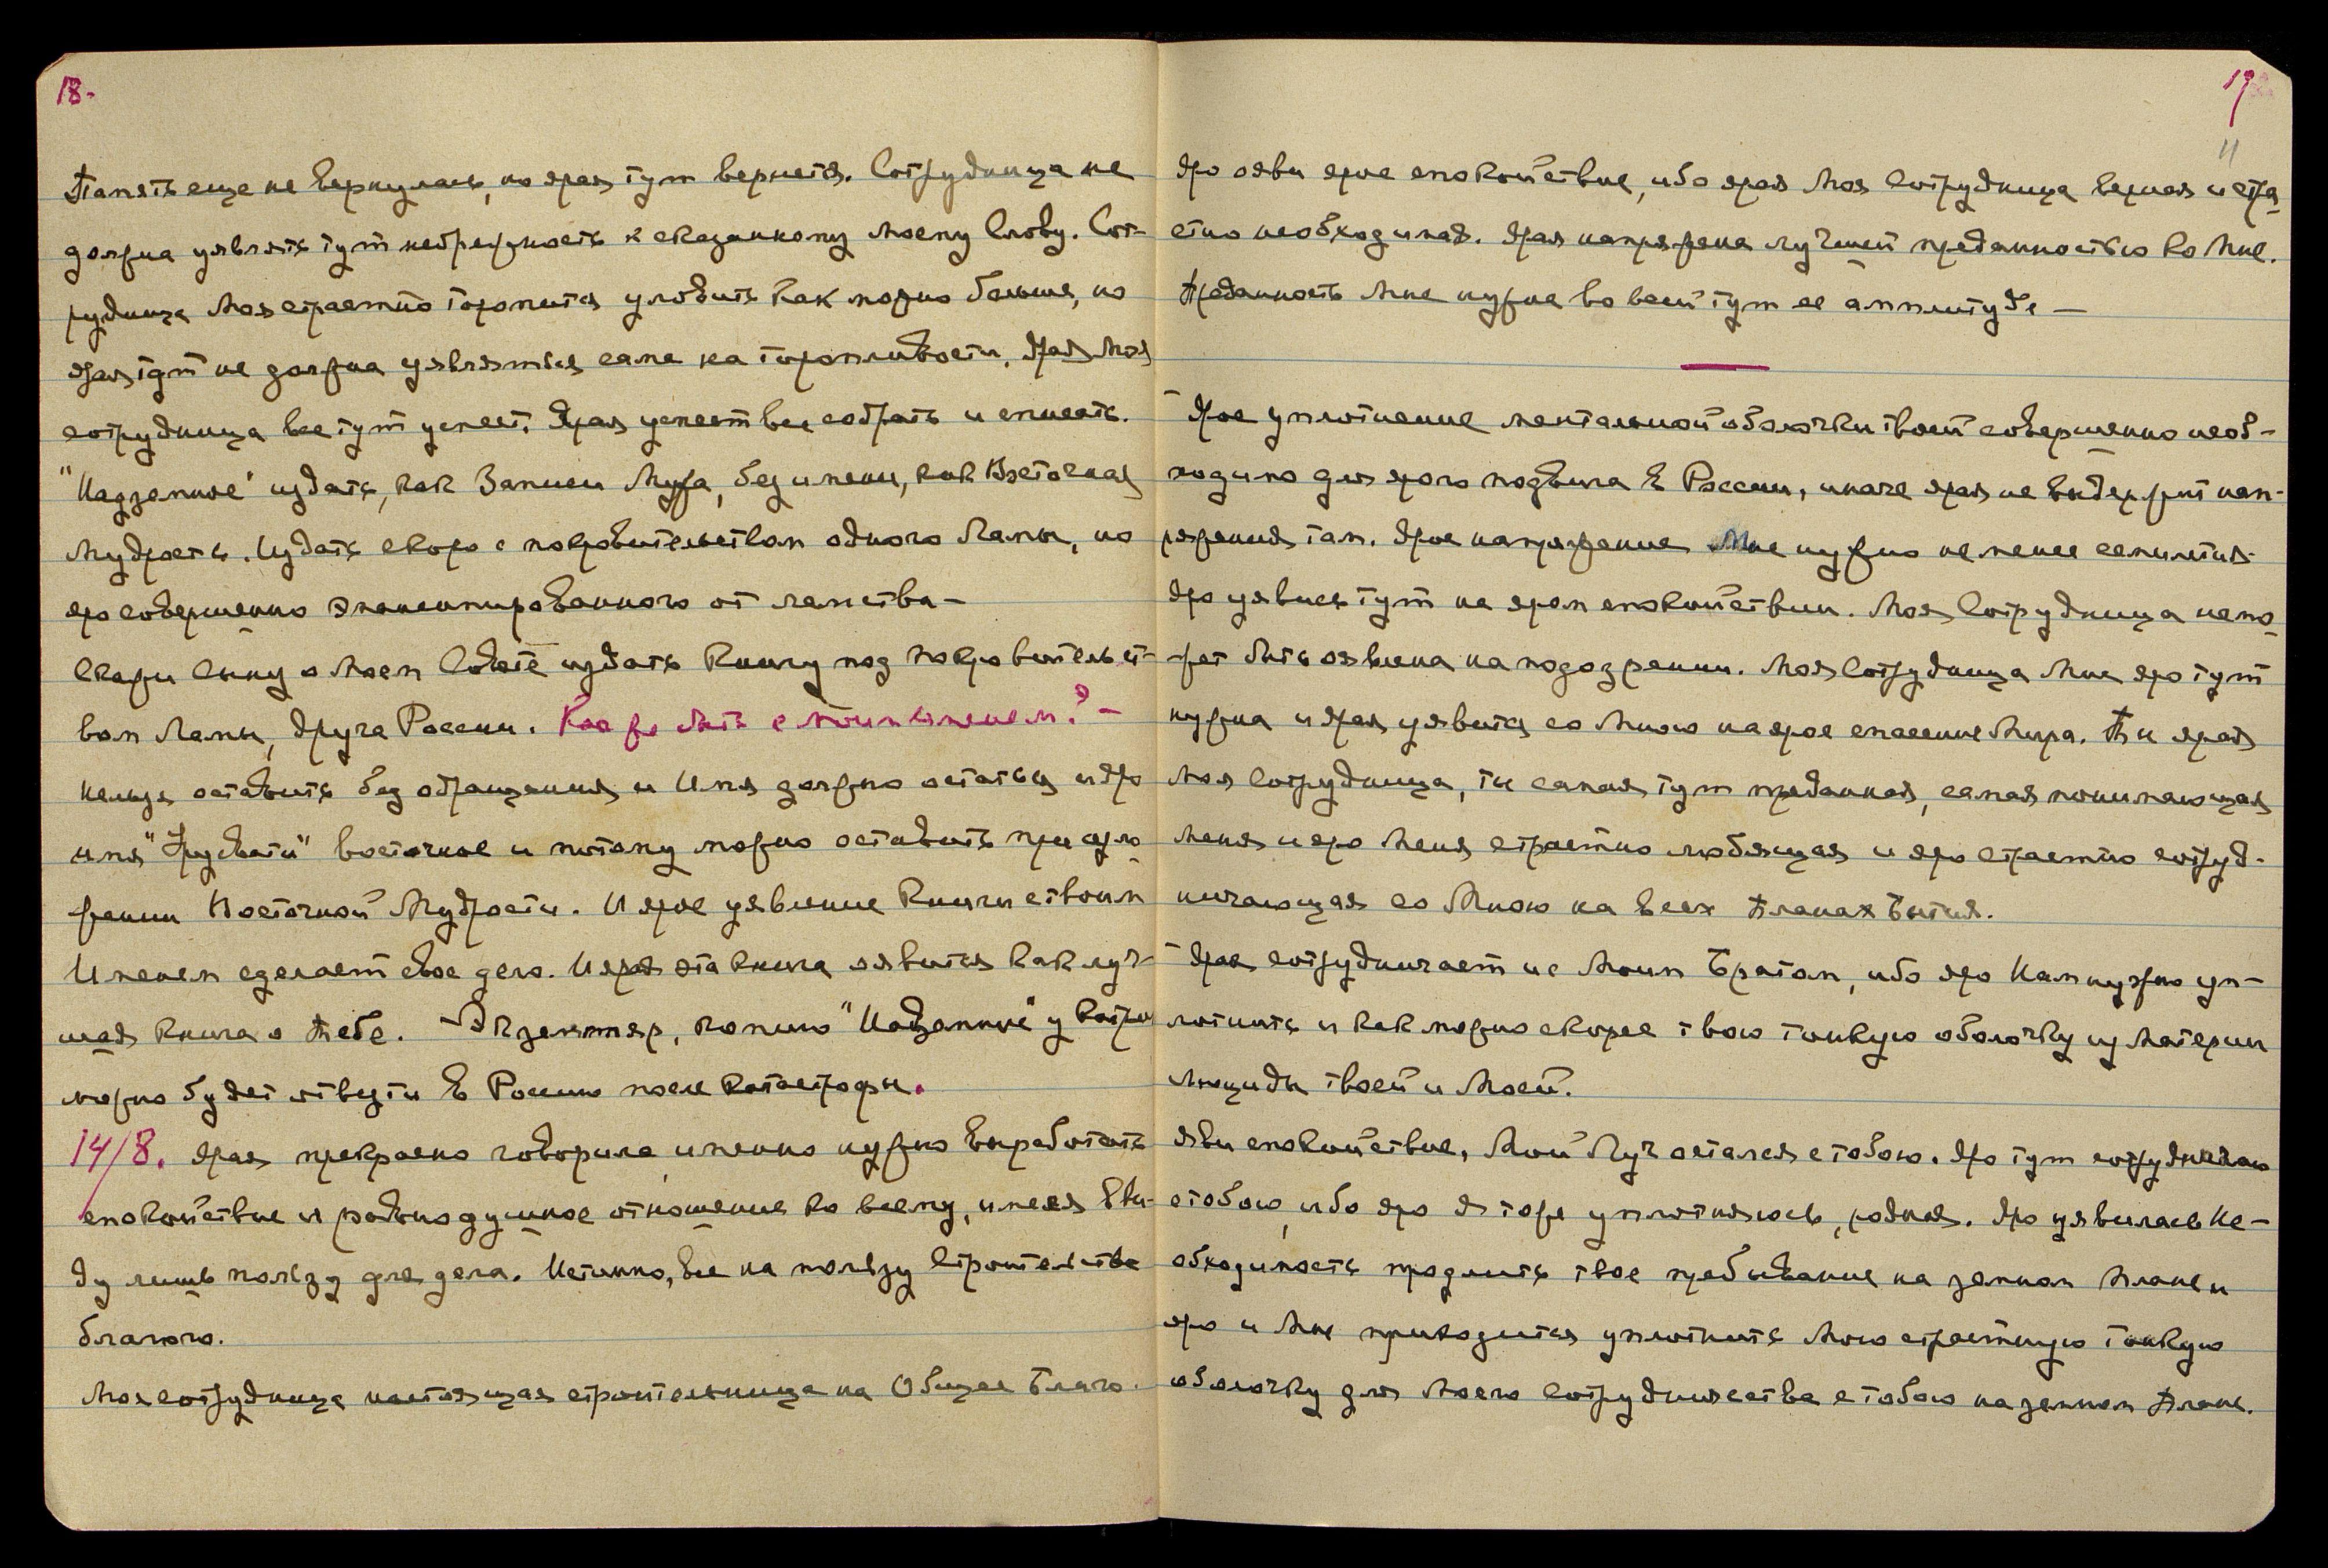 18.
Память еще не вернулась, но ярая тут вернется. Сотрудница не
должна уявлять тут небрежность к сказанному Моему Слову. Сот-
рудница Моя страстно торопится уловить как можно больше, но
ярая тут не должна уявляться сама на торопливости. Ярая Моя
сотрудница все тут успеет. Ярая успеет все собрать и списать.
"Надземное" издать, как Записи Мужа, без имени, как Восточная
Мудрость. Издать скоро с покровительством одного Ламы, но
яро совершенно эмансипированного от ламства –
Скажи сыну о Моем Совете издать Книгу под покровительст-
вом Ламы, друга России. Как же быть с моим именем? –
Нельзя оставить без обращения и Имя должно остаться и яро
имя "Урусвати" восточное и потому можно оставить при выра-
жении Восточной Мудрости. И ярое уявление Книги с твоим
Именем сделает свое дело. И ярая эта книга явится как луч-
шая книга о Тебе. – Экземпляр, копию "Надземное" у Кэтрин
можно будет отвезти в Россию после катастрофы.
14/8. Ярая прекрасно говорила, именно нужно выработать
спокойствие и равнодушное отношение ко всему, имея в ви-
ду лишь пользу для дела. Истинно, все на пользу строительства
благого.
Моя сотрудница настоящая строительница на Общее Благо.
19.
11
Яро яви ярое спокойствие, ибо ярая Моя Сотрудница верная и стра-
стно необходимая. Ярая напряжена лучшей преданностью ко Мне.
Преданность Мне нужна во всей тут ее амплитуде –
Ярое уплотнение ментальной оболочки твоей совершенно необ-
ходимо для ярого подвига в России, иначе ярая не выдержит нап-
ряжения там. Ярое напряжение Мне нужно не менее семилетия.
Яро уявись тут на яром спокойствии. Моя Сотрудница не мо-
жет быть явлена на подозрении. Моя Сотрудница Мне яро тут
нужна и ярая уявится со Мною на ярое спасение Мира. Ты ярая
Моя Сотрудница, ты самая тут преданная, самая понимающая
Меня и яро Меня страстно любящая и яро страстно сотруд-
ничающая со Мною на всех планах Бытия.
– Ярая сотрудничает и с Моим Братом, ибо яро Нам нужно уп-
лотнить и как можно скорее твою тонкую оболочку из Материи
Люциды твоей и Моей.
Яви спокойствие, Мой Луч остался с тобою. Яро тут сотрудничаю
с тобою, ибо яро Я тоже уплотняюсь, родная. Яро уявилась Не-
обходимость продлить твое пребывание на земном плане и
яро и Мне приходится уплотнить Мою страстную тонкую
оболочку для Моего Сотрудничества с тобою на земном плане.